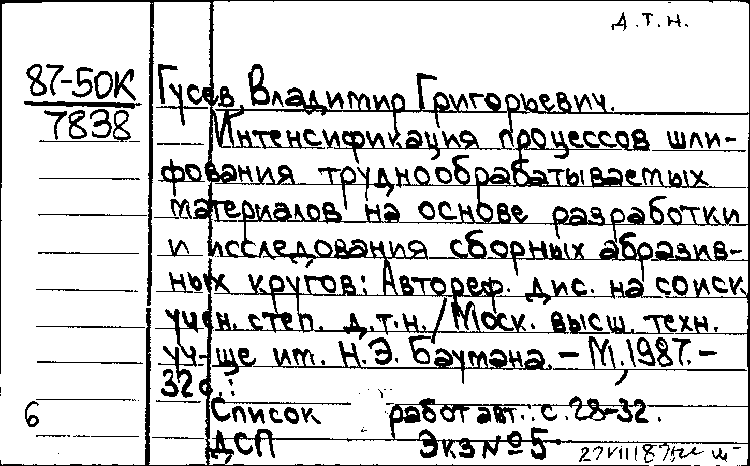 д.т.н.
87-50К
7838
Гусев Владимир Григорьевич.
Интенсификация процессов шли-
фования труднообрабатываемых
материалов на основе разработки
и исследования сборных абразив-
ных кругов: Автореф. дис. на соиск
учен. степ. д.т.н./Моск. высш. техн.
уч-ще им. Н.Э. Баумана. – М, 1987. –
32с.:
Список работ авт.: с. 28-32.
6
ДСП Экз № 5
27VIII87